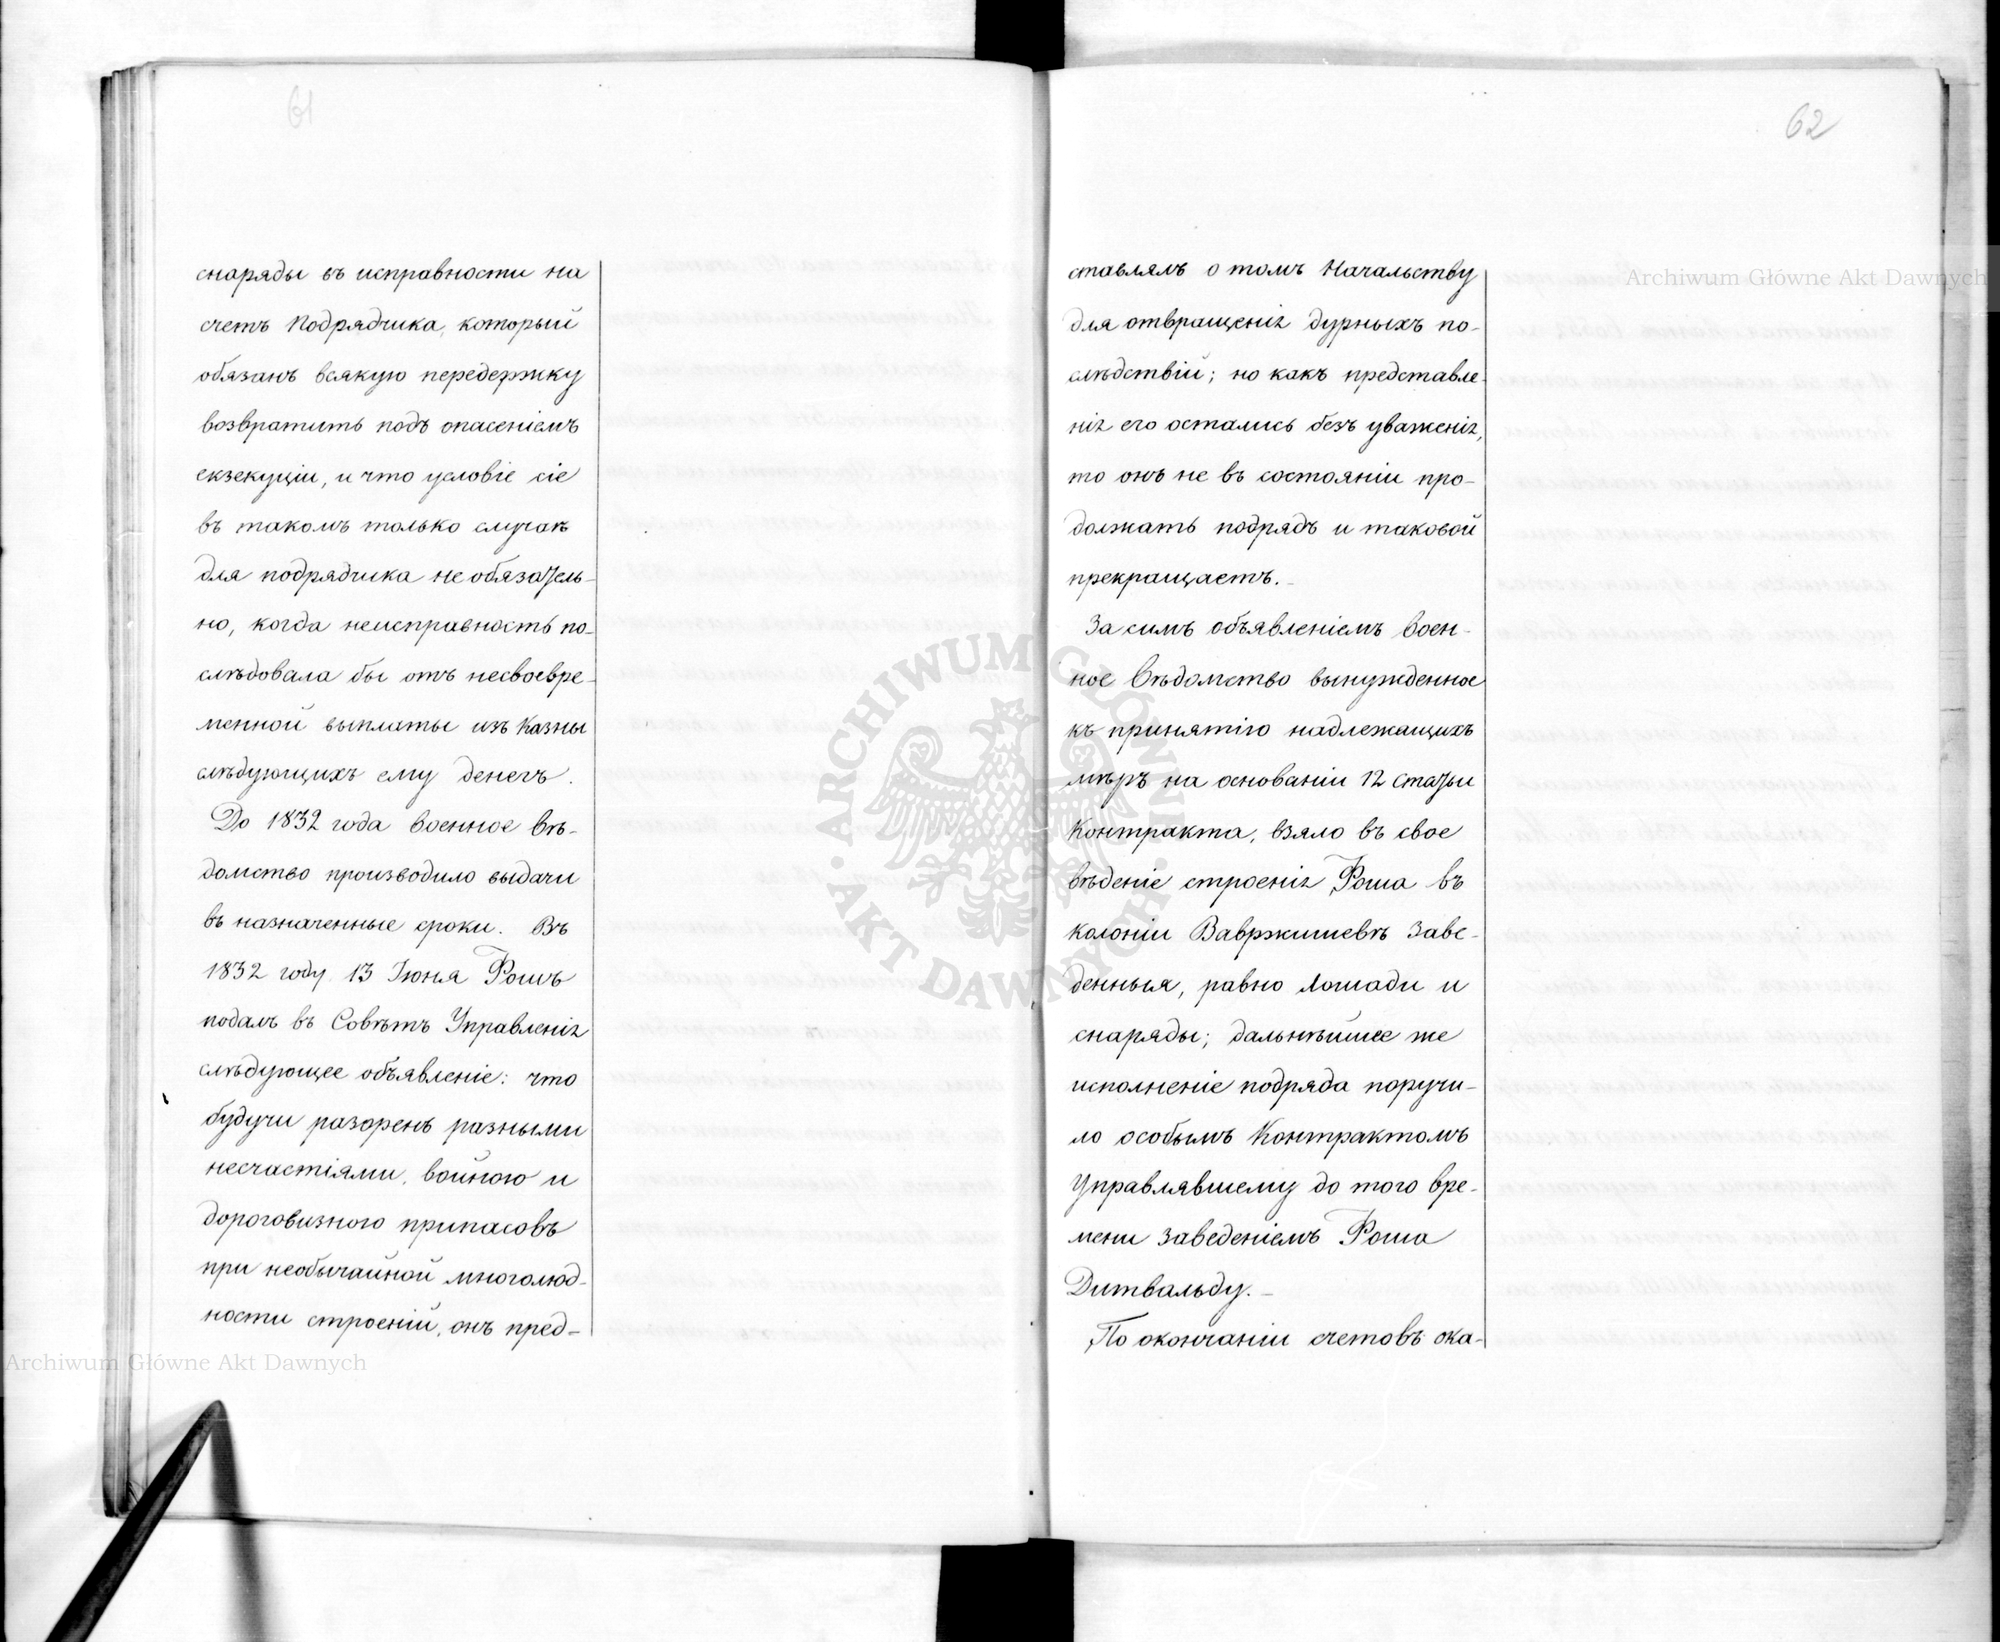 61
снаряды въ исправности на
счетъ Подрядчика, который
обязанъ всякую передержку
возвратить подъ опасеніемъ
екзекуціи, и что условіе сіе
въ такомъ только случаѣ
для подрядчика не обязатель-
но, когда неисправность по-
слѣдовала бы отъ несвоевре-
менной выплаты изъ Казны
слѣдующихъ ему денегъ.
До 1832 года военное вѣ-
домство производило выдачи
въ назначенные сроки. Въ
1832 году 13 Іюня Рошъ
подалъ въ Совѣтъ Управленія
слѣдующее объявленіе: что
будучи разоренъ разными
несчастіями, войною и
дороговизною припасовъ
при необычайной многолюд-
ности строеній, онъ пред-
62
ставлялъ о томъ Начальству
для отвращенія дурныхъ по-
слѣдствій; но какъ представле-
нія его остались безъ уваженія,
то онъ не въ состояніи про-
должать подрядъ и таковой
прекращаетъ.
За симъ объявленіемъ воен-
ное вѣдомство вынужденное
къ принятію надлежащихъ
мѣръ на основаніи 12 статьи
Контракта, взяло въ свое
вѣденіе строенія Роша въ
колоніи Вавржишевѣ заве-
денныя, равно лошади и
снаряды; дальнѣйшее же
исполненіе подряда поручи-
ло особымъ Контрактомъ
Управлявшему до того вре-
мени заведеніемъ Роша
Дитвальду.
По окончаніи счетовъ ока-
Archiwum Główne Akt Dawnych
Archiwum Główne Akt Dawnych
ARCHIWUM GŁÓWNE
AKT DAWNYCH